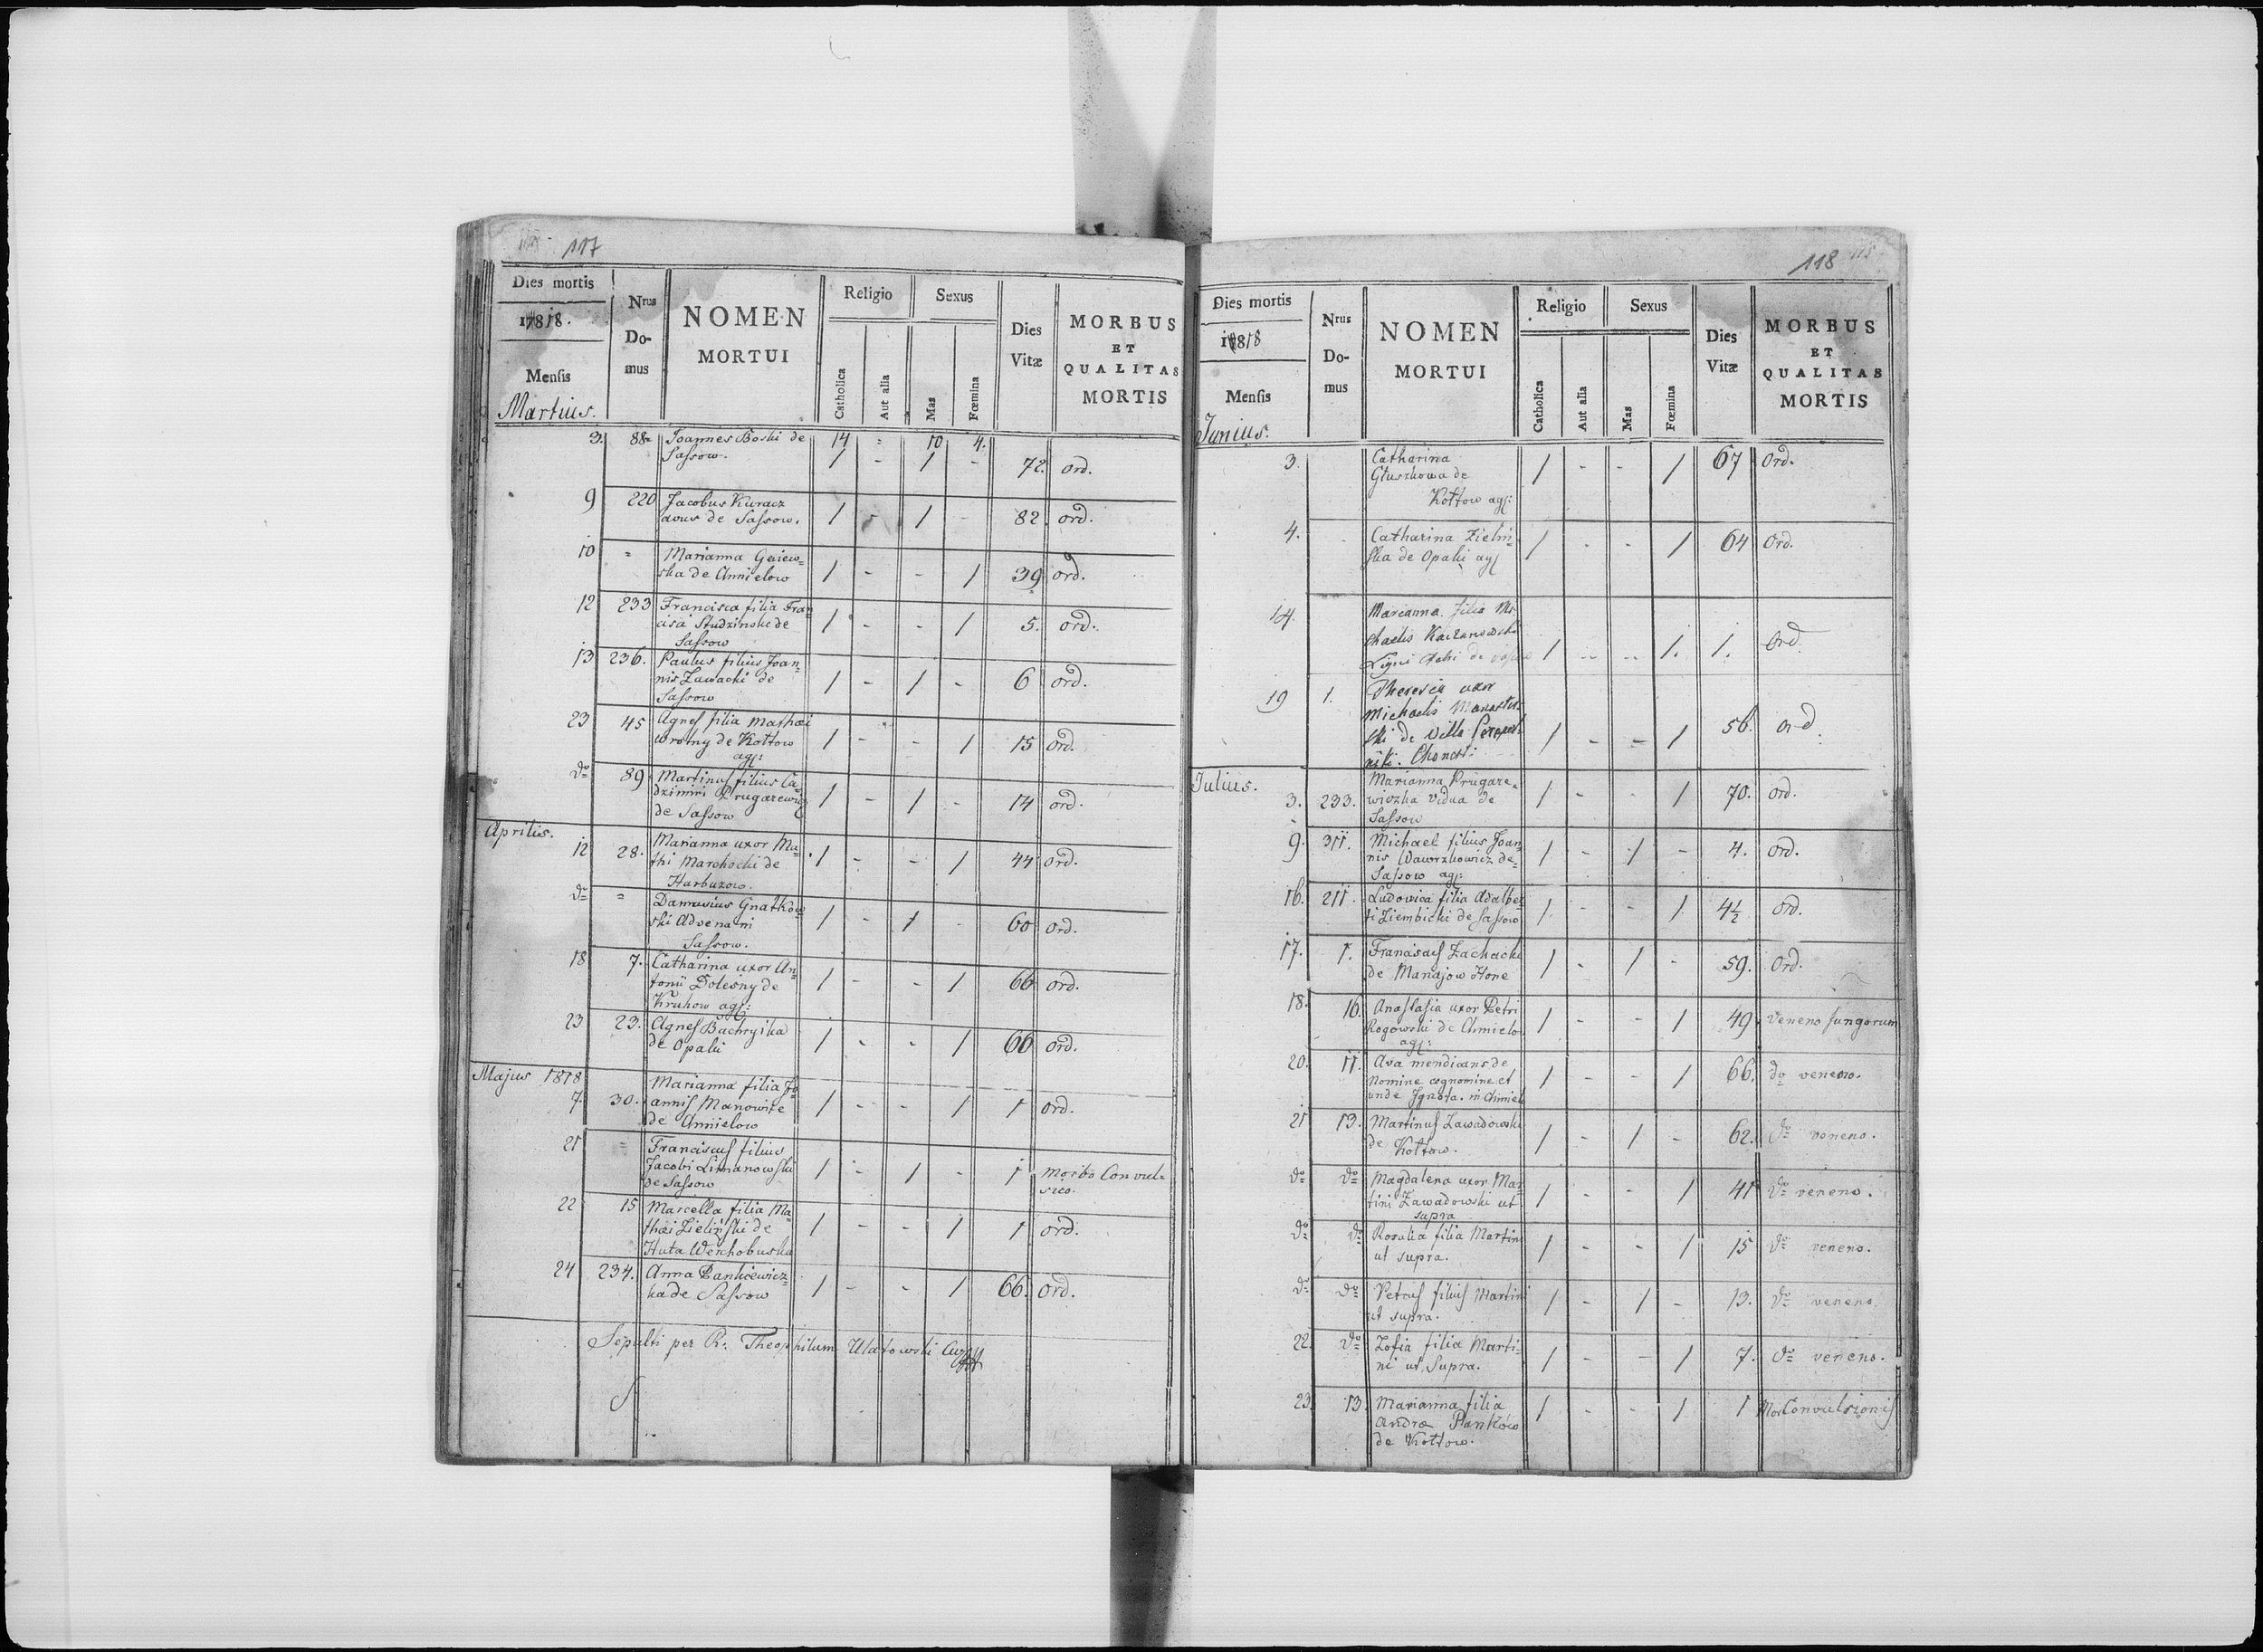 117
Dies mortis
1818.
Mensis
Martius.
Nrus Domus
NOMEN
MORTUI
Religio
Catholica
Aut alia
Sexus
Mas
Fœmina
Dies
Vitæ
MORBUS
ET
QUALITAS
MORTIS
14 = 10 4.
3. 88. Joannes Boski de
Sassow. 1 - 1 - 72. ord.
9 220 Jacobus Kuracz
avus de Sassow. 1 - 1 - 82. ord.
10 = Marianna
ska de 1 - - 1 39 ord.
12 233 Francisca filia Fran
cisci Studzinski de
Sassow 1 - - 1 5. ord.
13 236. Paulus filius Joan-
nis Zawacki de
Sassow 1 - 1 - 6 ord.
23 45 Agnes filia Mathæi
Wrotny de Kołtow
agr: 1 - - 1 15 ord.
do 89 Martinus filius Ca-
dzimiri Prugarewicz
de Sassow 1 - 1 - 14 ord.
Aprilis.
12 28. Marianna uxor Ma-
thi Marchocki de
Harbuzow. 1 - - 1 44 ord.
do = Damasius Gnatkow-
ski Advena in
Sassow. 1 - 1 - 60 ord.
18 7. Catharina uxor An-
tonii Dolesny de
Kruhow agr: 1 - - 1 66 ord.
23 23. Agnes
de Opaki 1 - - 1 66 ord.
Majus 1818
7 30. Marianna filia Jo
annis
de 1 - - 1 1 ord.
21 = Franciscus filius
Jacobi Limanowski
de Sassow 1 - 1 - 1 morbo Convul-
sico.
22 15 Marcella filia Ma-
thæi Zieliński de
Huta Werchobuska 1 - - 1 1 ord.
24 234. Anna Pankiewicz-
ka de Sassow 1 - - 1 66. ord.
Sepulti per R: Theophilum Ulatowski
118
Dies mortis
1818
Mensis
Junius.
Nrus Domus
NOMEN
MORTUI
Religio
Catholica
Aut alia
Sexus
Mas
Fœmina
Dies
Vitæ
MORBUS
ET
QUALITAS
MORTIS
3. Catharina
Głuszkowa de
Kołtow agr: 1 - - 1 67 Ord.
4. Catharina Zieliń-
ska de Opaki agr 1 - - 1 64 Ord.
14. Marianna filia Mi
chaelis
1 - - 1. 1. Ord
19 1. Theresia uxor
Michaelis
ski de villa
1 - - 1 56. ord
Julius.
3. 233. Marianna Prugare-
wiczka vidua de
Sassow 1 - - 1 70. ord.
9. 311. Michael filius Joan-
nis Wawrzkowicz de
Sassow agr: 1 - 1 - 4. ord.
16. 211. Ludovica filia Adalber
ti Ziembicki de Sassow 1 - - 1 4½ ord.
17. 1. Franciscus Zachacki
de 1 - 1 - 59. Ord.
18. 16. Anastasia uxor Petri
Rogowski de
agr: 1 - - 1 49 Veneno fungorum
20. 11. Ava mendicans de
Nomine cognomine et
unde Ignota. in 1 - - 1 66. do veneno.
21 13. Martinus Zawadowski
de Kołtow. 1 - 1 - 62. do veneno.
do do Magdalena uxor Mar-
tini Zawadowski ut
supra 1 - - 1 41 do veneno.
do do Rosalia filia Martini
ut supra. 1 - - 1 15 do veneno.
do do Petrus filius Martini
ut supra. 1 - 1 - 13. do veneno.
22. do Zofia filia Marti-
ni ut Supra. 1 - - 1 7. do veneno.
23 13 Marianna filia
Andræ Pankow
de Kołtow. 1 - - 1 1 Mor Convulsionis